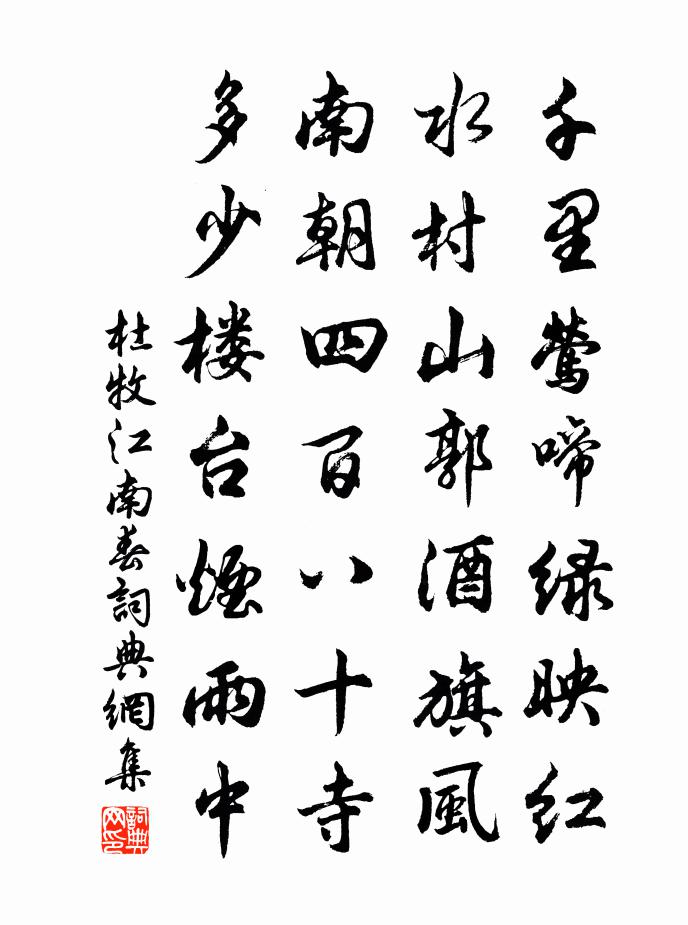 千里鶯啼绿映红
水村山郭酒旗風
南朝四百八十寺
多少楼台煙雨中
杜牧江南春詞典網集
詞典网印